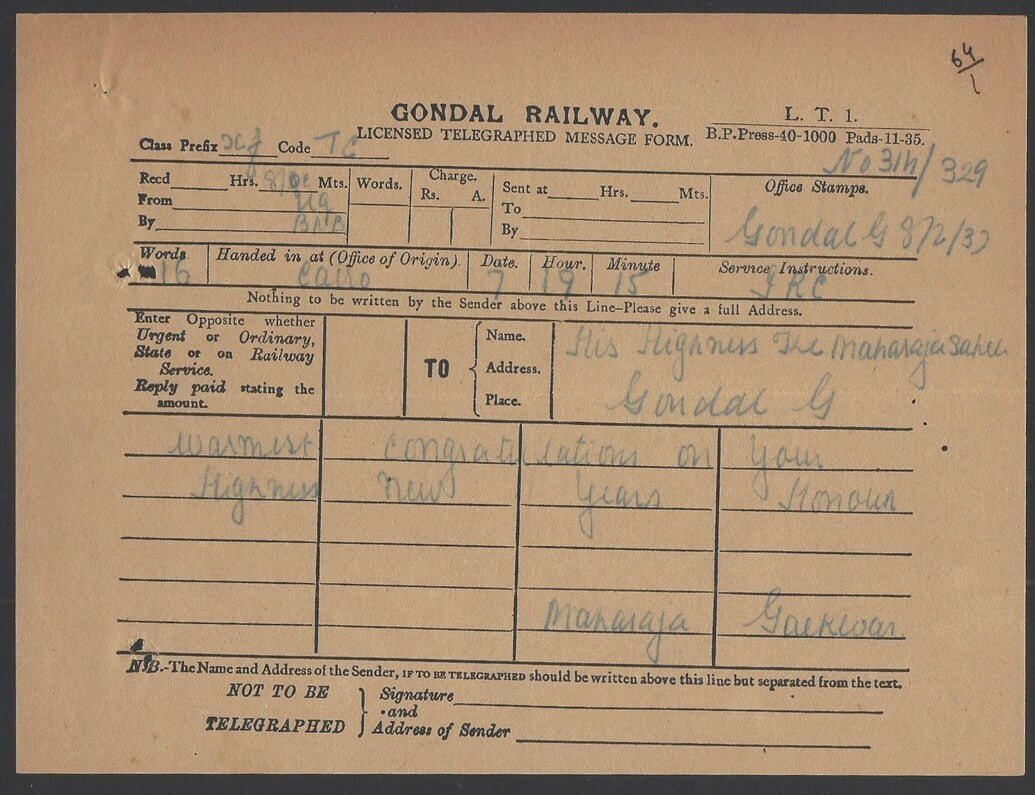 64/1
GONDAL RAILWAY. L. T. 1.
LICENSED TELEGRAPHED MESSAGE FORM. B.P.Press-40-1000 Pads-11-35.
Class Prefix Code TC
No 31h/329
Recd Hrs. Mts. Words. Charge. Sent at Hrs. Mts. Office Stamps.
Rs. A.
From To
By By
Gondal G 8/2/37
Words Handed in at (Office of Origin). Date. Hour. Minute Service Instructions.
16 Cairo 7 19 15
Nothing to be written by the Sender above this Line-Please give a full Address.
Enter Opposite whether
Urgent or Ordinary,
State or on Railway
Service.
Reply paid stating the
amount.
TO
Name. His Highness The Maharaja Saheb
Address.
Place. Gondal G
Warmest congratulations on Your
Highness New Years Honour
Maharaja Gaekwar
N.B.-The Name and Address of the Sender, IF TO BE TELEGRAPHED should be written above this line but separated from the text.
NOT TO BE Signature
and
TELEGRAPHED Address of Sender